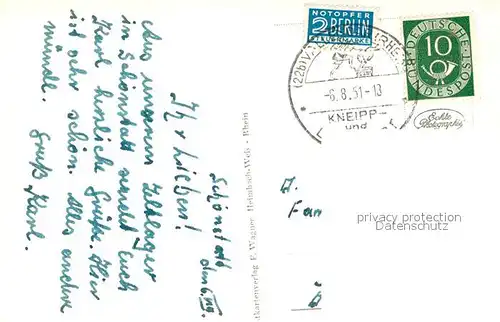 Schönstatt
den 6. VIII.
Ihr Lieben!
Aus unserem Zeltlager
in Schönstatt sendet Euch
Karl herzliche Grüße. Hier
ist es sehr schön. Alles andere
mündl.
Gruß Karl.
NOTOPFER
2 BERLIN
STEUERMARKE
DEUTSCHE
BUNDESPOST
10
(22b) VA
-6.8.51-13
KNEIPP-
und
Echte
Photographie
kartenverlag F. Wagner Heimbach-Weis - Rhein
Fam
privacy protection
DSGVO